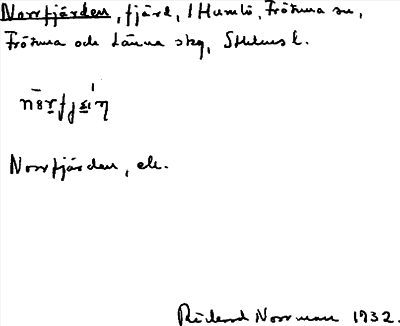 Norrfjärden, fjärd, i Humlö, Frötuna sn,
Frötuna och Länna skg, Sthlms l.
Norrfjärden, ek.
Rickard Norrman 1932.